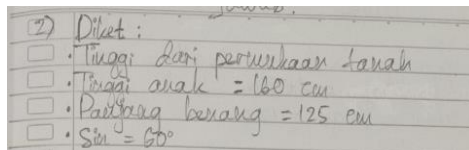 2) Diket :
. Tinggi dari permukaan tanah
. Tinggi anak = 160 cm
. Panjang benang = 125 cm
. Sin = 60°